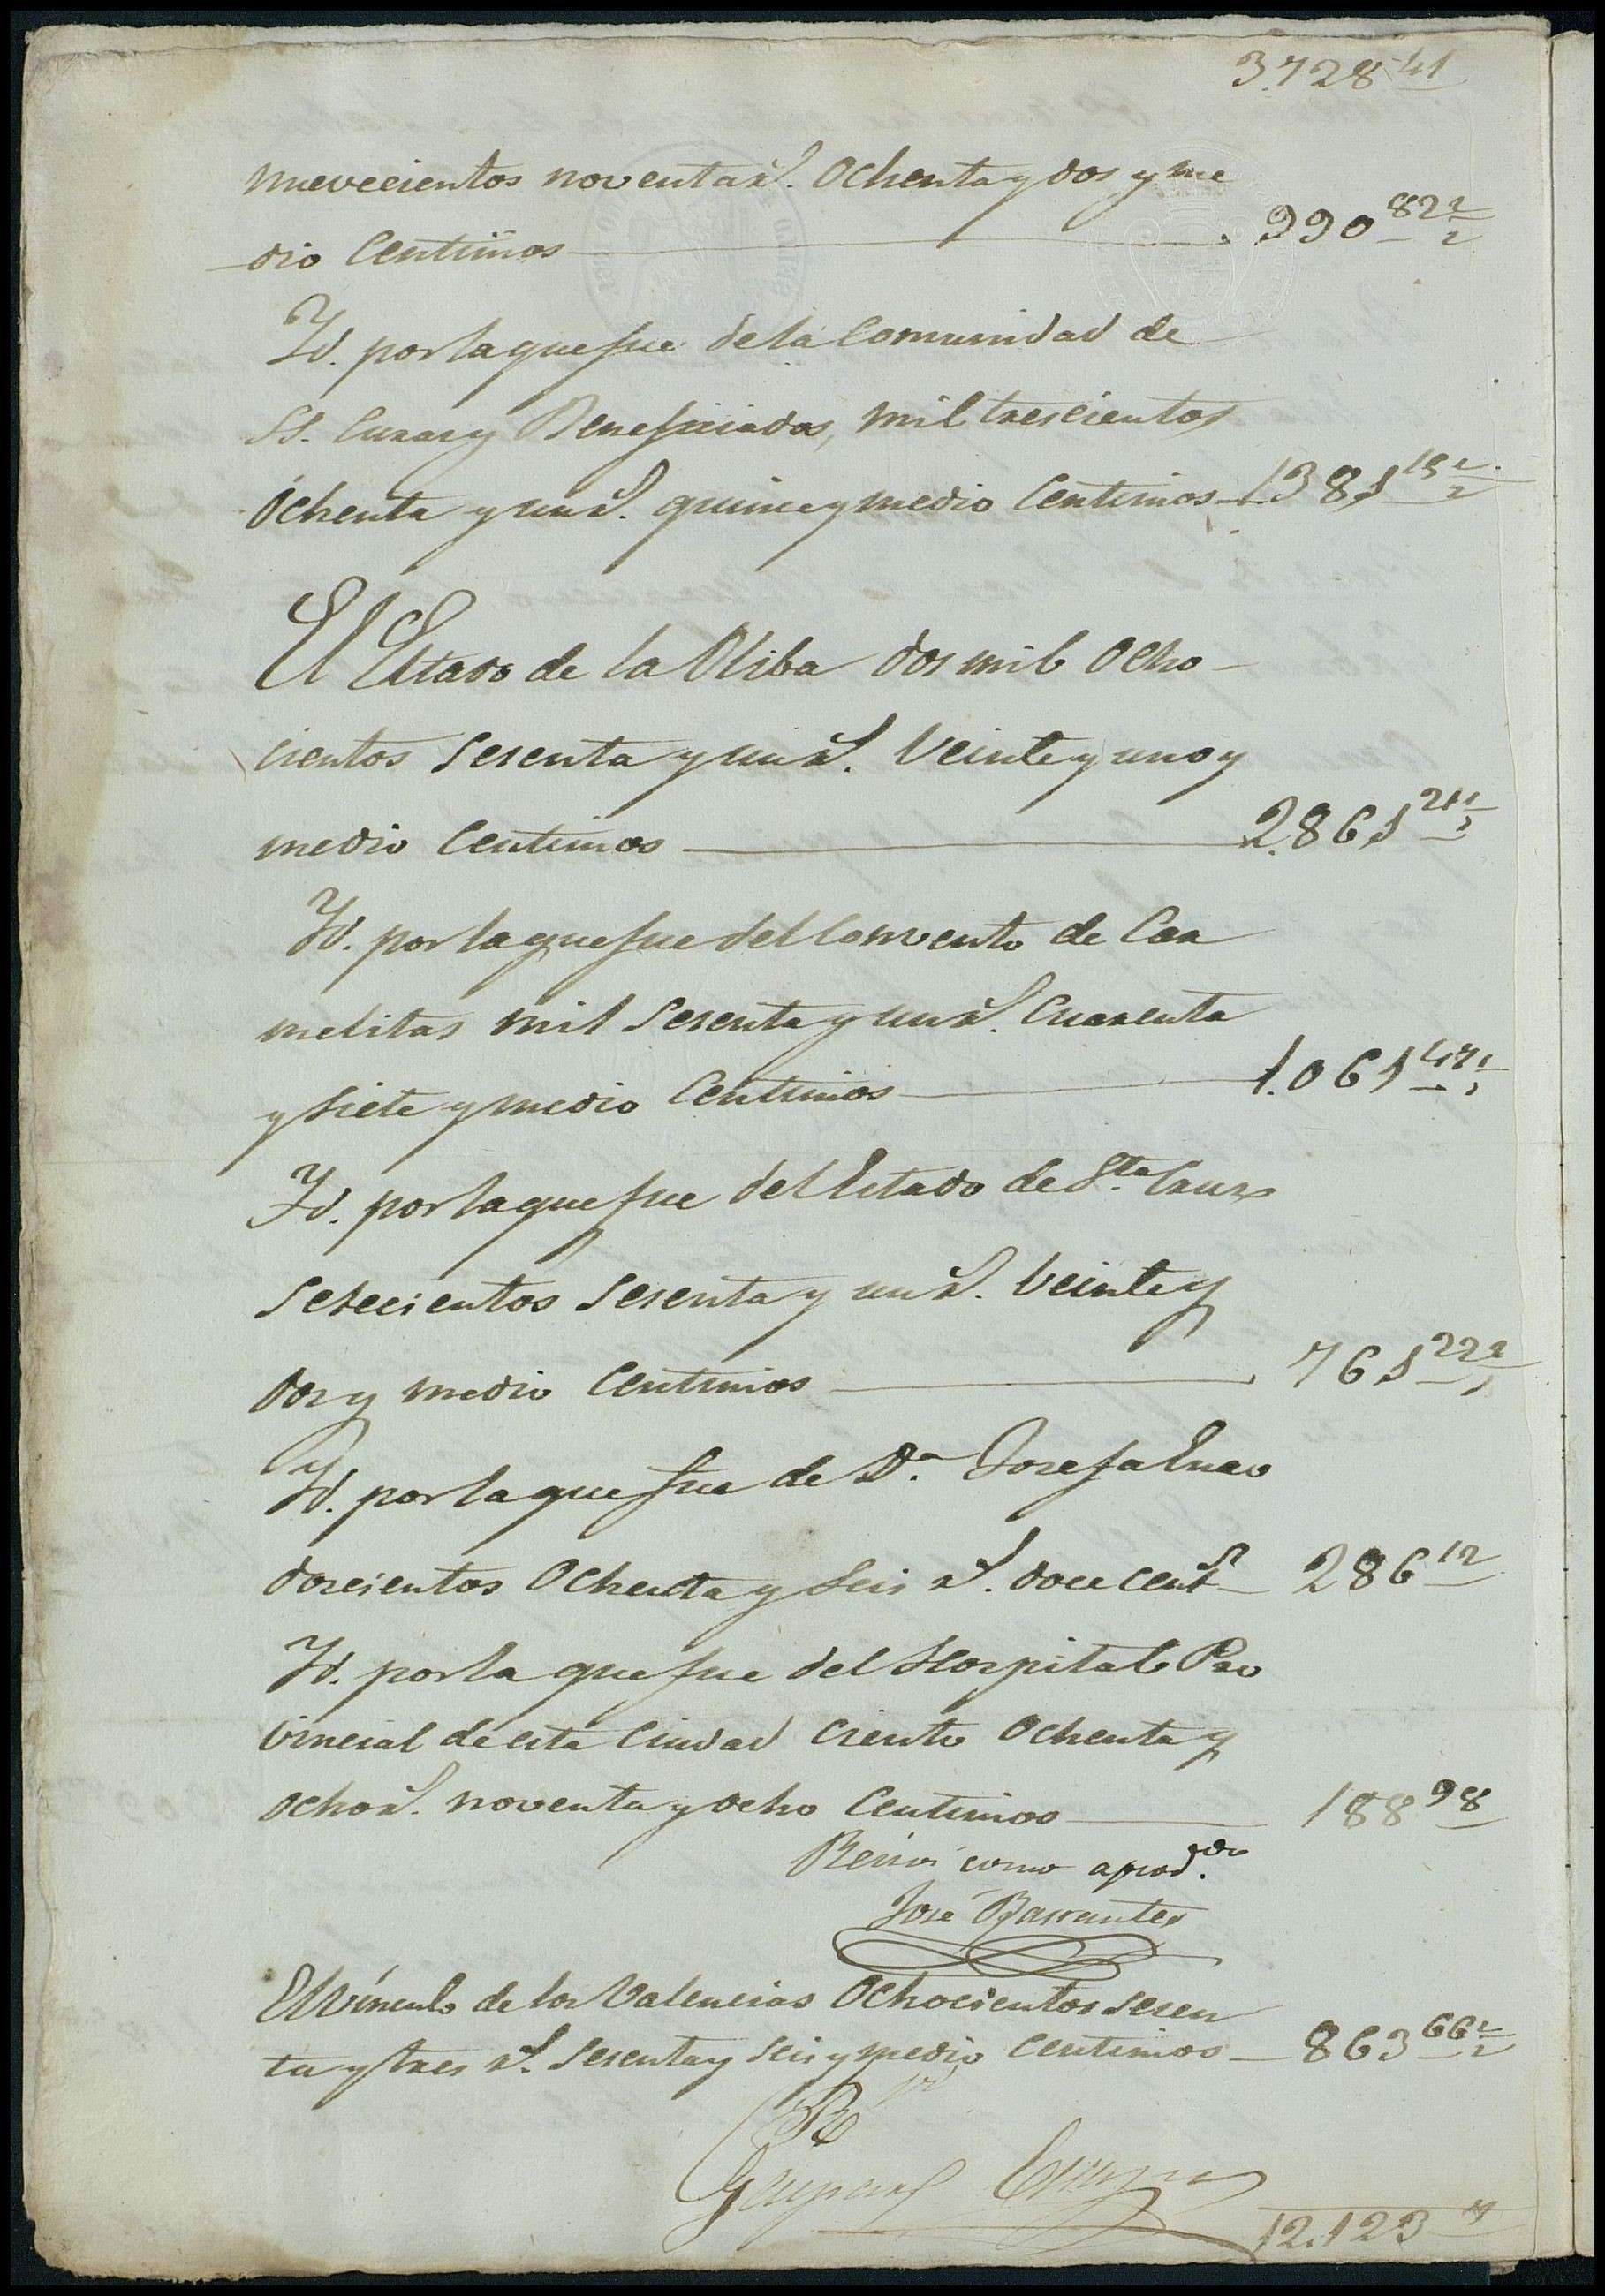 3.728 41
nuevecientos noventa rs. Ochenta y dos y me
dio Centimos 990 82 1/2
Yd. por la que fue de la Comunidad de
SS. Curas y Beneficiados, mil trescientos
Ochenta y un rs. quince y medio Centimos 1381 15 1/2
El Estado de la Oliba dos mil ocho
cientos sesenta y un rs. Veinte y uno y
medio Centimos 2.861 21 1/2
Yd. por la que fue del Convento de Car
melitas mil sesenta y un rs. Cuarenta
y siete y medio Centimos 1.061 47 1/2
Yd. por la que fue del Estado de Sta. Cruz
setecientos sesenta y un rs. Veinte y
dos y medio Centimos 761 22 1/2
Yd. por la que fue de Da. Josefa
doscientos Ochenta y seis rs. doce cents. 286 12
Yd. por la que fue del Hospital Pro
vincial de esta Ciudad Ciento Ochenta y
ocho rs. noventa y ocho Centimos 188 98
Reciví como apod.do
José Barrantes
El vínculo de los Valencias Ochocientos sesen
ta y tres rs. sesenta y seis y medio Centimos 863 66 1/2
Rví
12.123